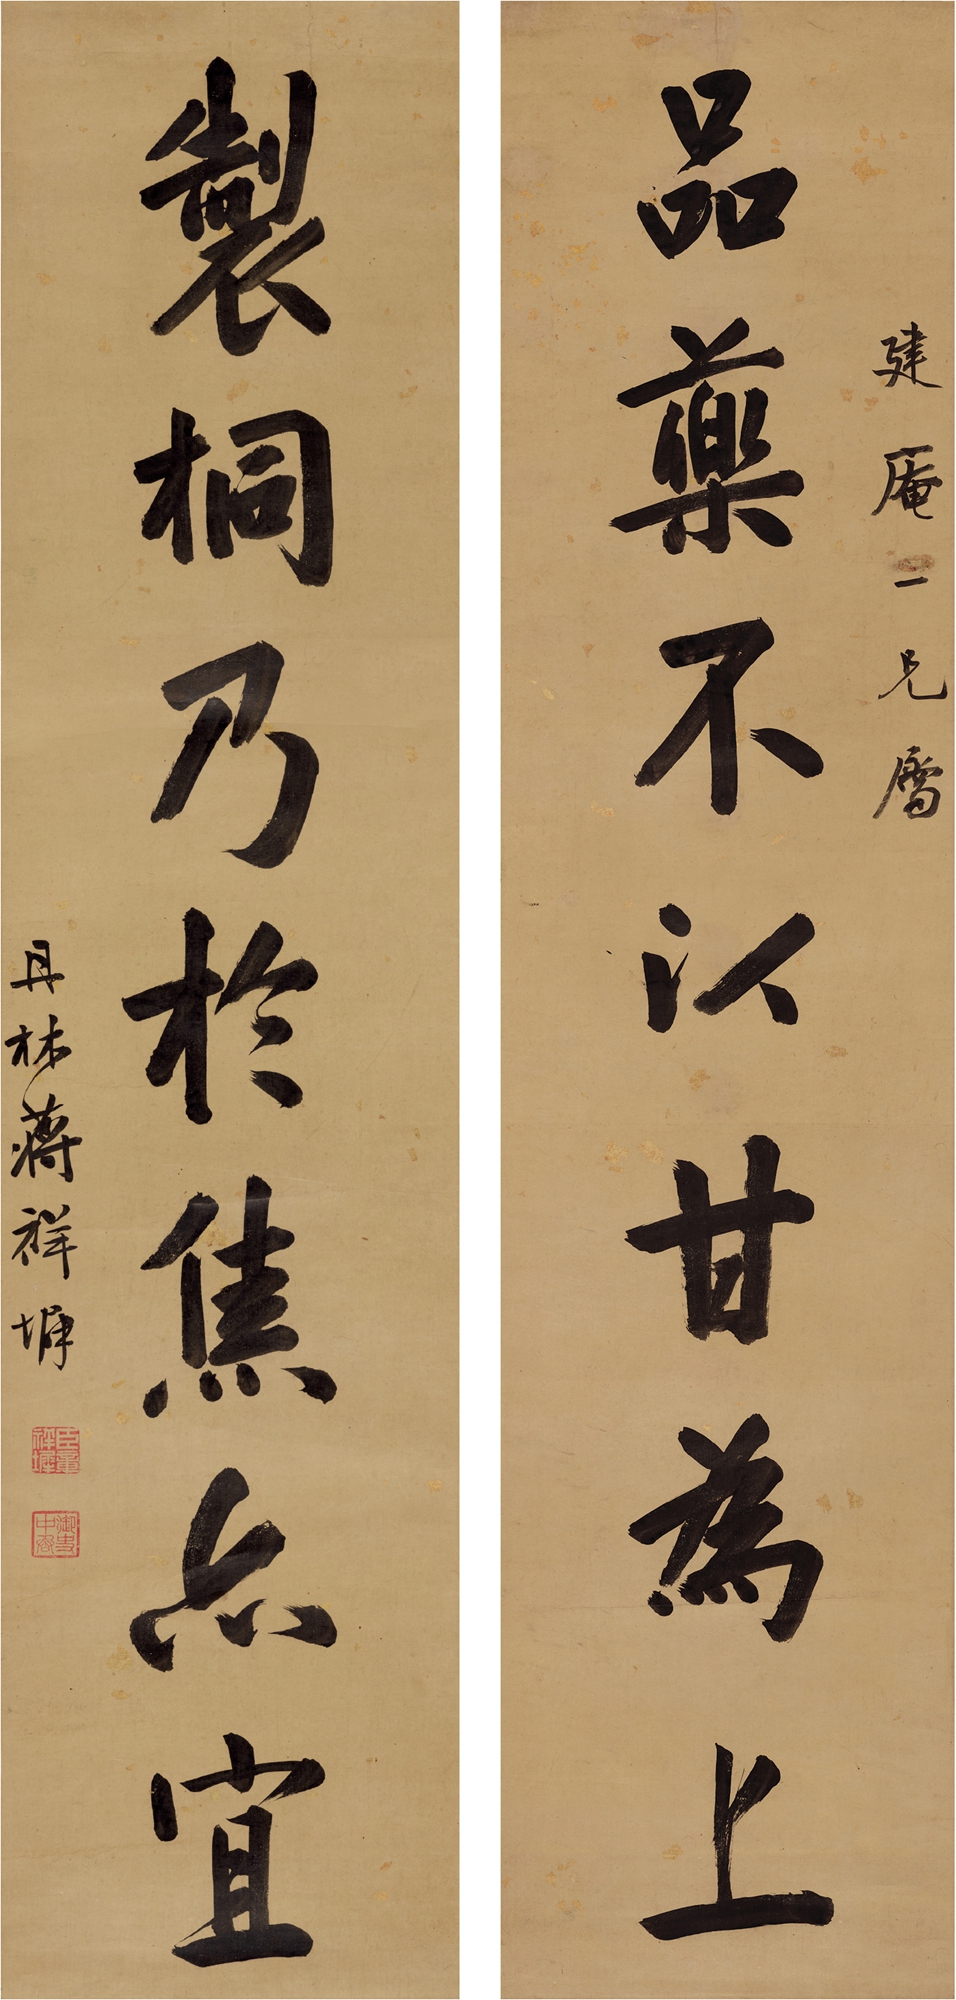 建庵一兄屬
品藥不以甘為上
製桐乃於焦亦宜
丹林蔣祥墀
御史中丞